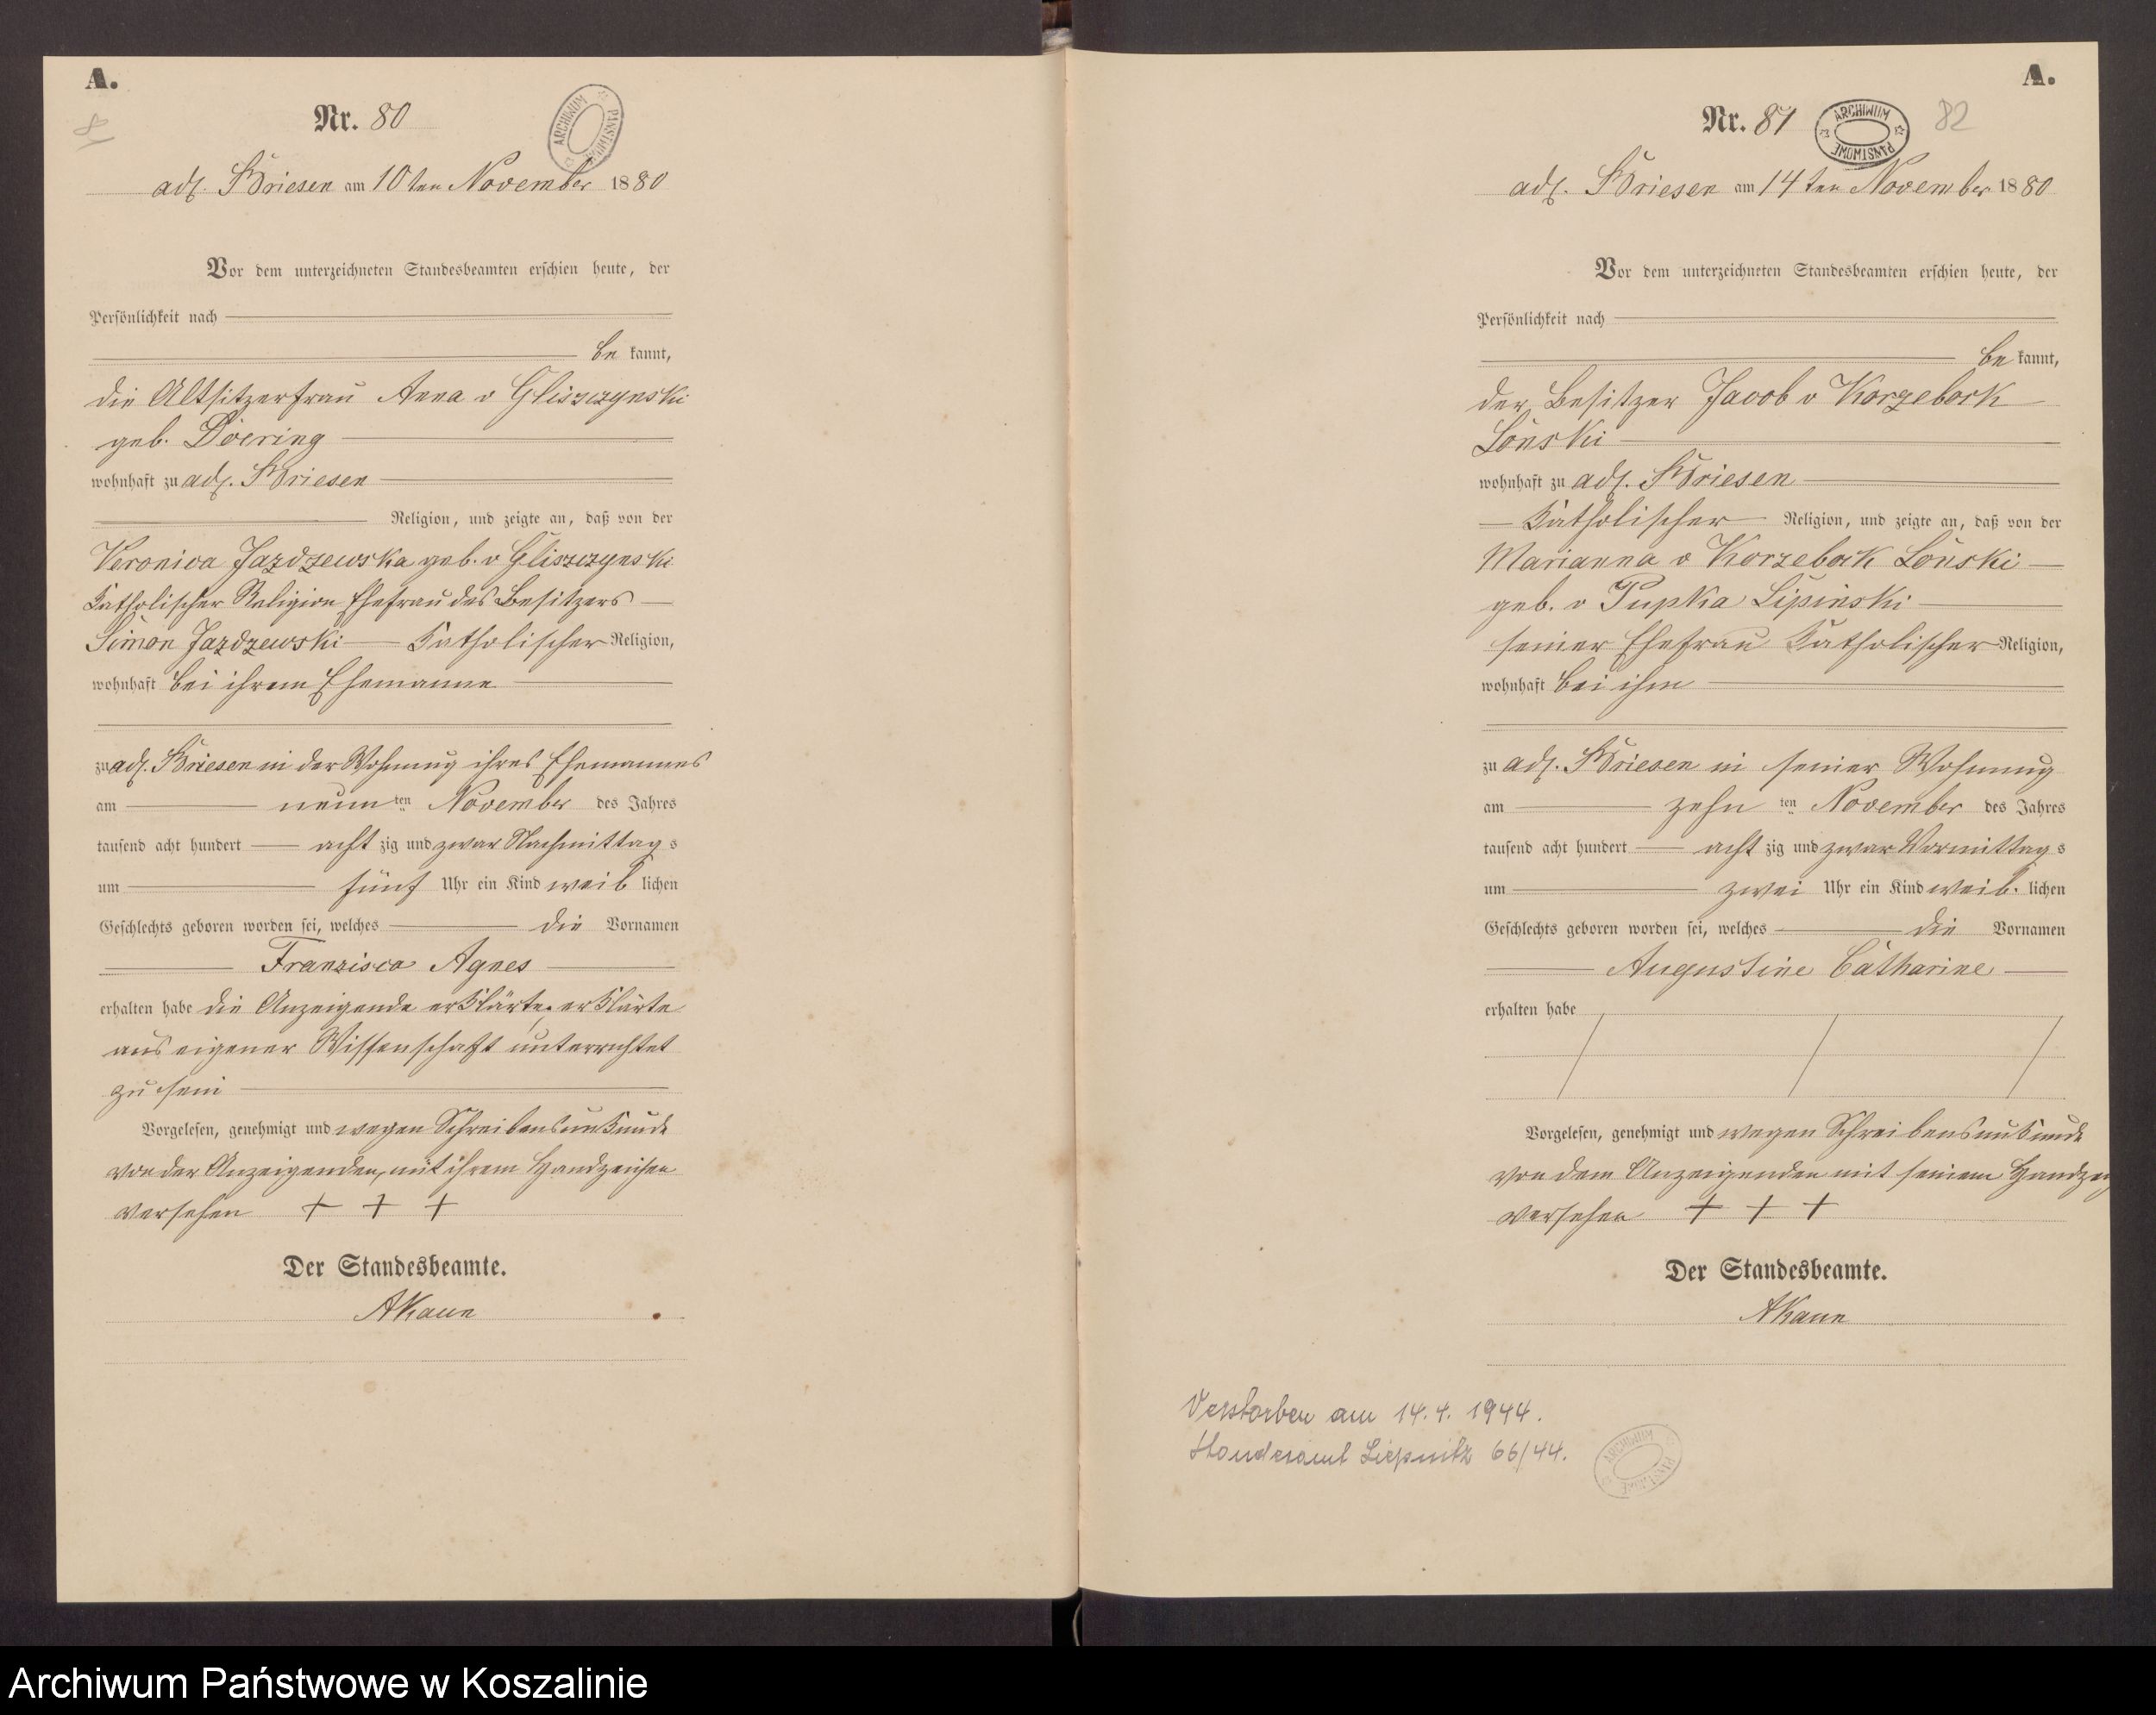 A.
Nr. 80
ARCHIWUM PAŃSTWOWE
adl. Briesen am 10ten November 1880
Vor dem unterzeichneten Standesbeamten erschien heute, der
Persönlichkeit nach
be kannt,
die Altsitzerfrau Anna v Gliszczynski
geb. Doering
wohnhaft zu adl. Briesen
Religion, und zeigte an, daß von der
Veronica Jazdzewska geb. v Gliszczynski
Katholischer Religion Ehefrau des Besitzers
Simon Jazdzewski Katholischer Religion,
wohnhaft bei ihrem Ehemanne
zu adl. Briesen in der Wohnung ihres Ehemannes
am neun ten November des Jahres
tausend acht hundert acht zig und zwar Nachmittag s
um fünf Uhr ein Kind weib lichen
Geschlechts geboren worden sei, welches die Vornamen
Franzisca Agnes
erhalten habe die Anzeigende erklärte, erklärte
aus eigener Wissenschaft unterrichtet
zu sein
Vorgelesen, genehmigt und wegen Schreibensunkunde
von der Anzeigenden, mit ihrem Handzeichen
versehen + + +
Der Standesbeamte.
AKaun
A.
Nr. 81
ARCHIWUM PAŃSTWOWE
82
adl. Briesen am 14ten November 1880
Vor dem unterzeichneten Standesbeamten erschien heute, der
Persönlichkeit nach
be kannt,
der Besitzer Jacob v Korzebock
Lonski
wohnhaft zu adl. Briesen
Katholischer Religion, und zeigte an, daß von der
Marianna v Korzebock Lonski
geb. v Pupka Lipinski
seiner Ehefrau Katholischer Religion,
wohnhaft bei ihm
zu adl. Briesen in seiner Wohnung
am zehn ten November des Jahres
tausend acht hundert acht zig und zwar Vormittag s
um zwei Uhr ein Kind weib. lichen
Geschlechts geboren worden sei, welches die Vornamen
Augustine Catharine
erhalten habe
Vorgelesen, genehmigt und wegen Schreibensunkunde
von dem Anzeigenden mit seinem
versehen + + +
Der Standesbeamte.
AKaun
Verstorben am 14.4.1944.
Standesamt Liepnitz 66/44.
ARCHIWUM PAŃSTWOWE
Archiwum Państwowe w Koszalinie